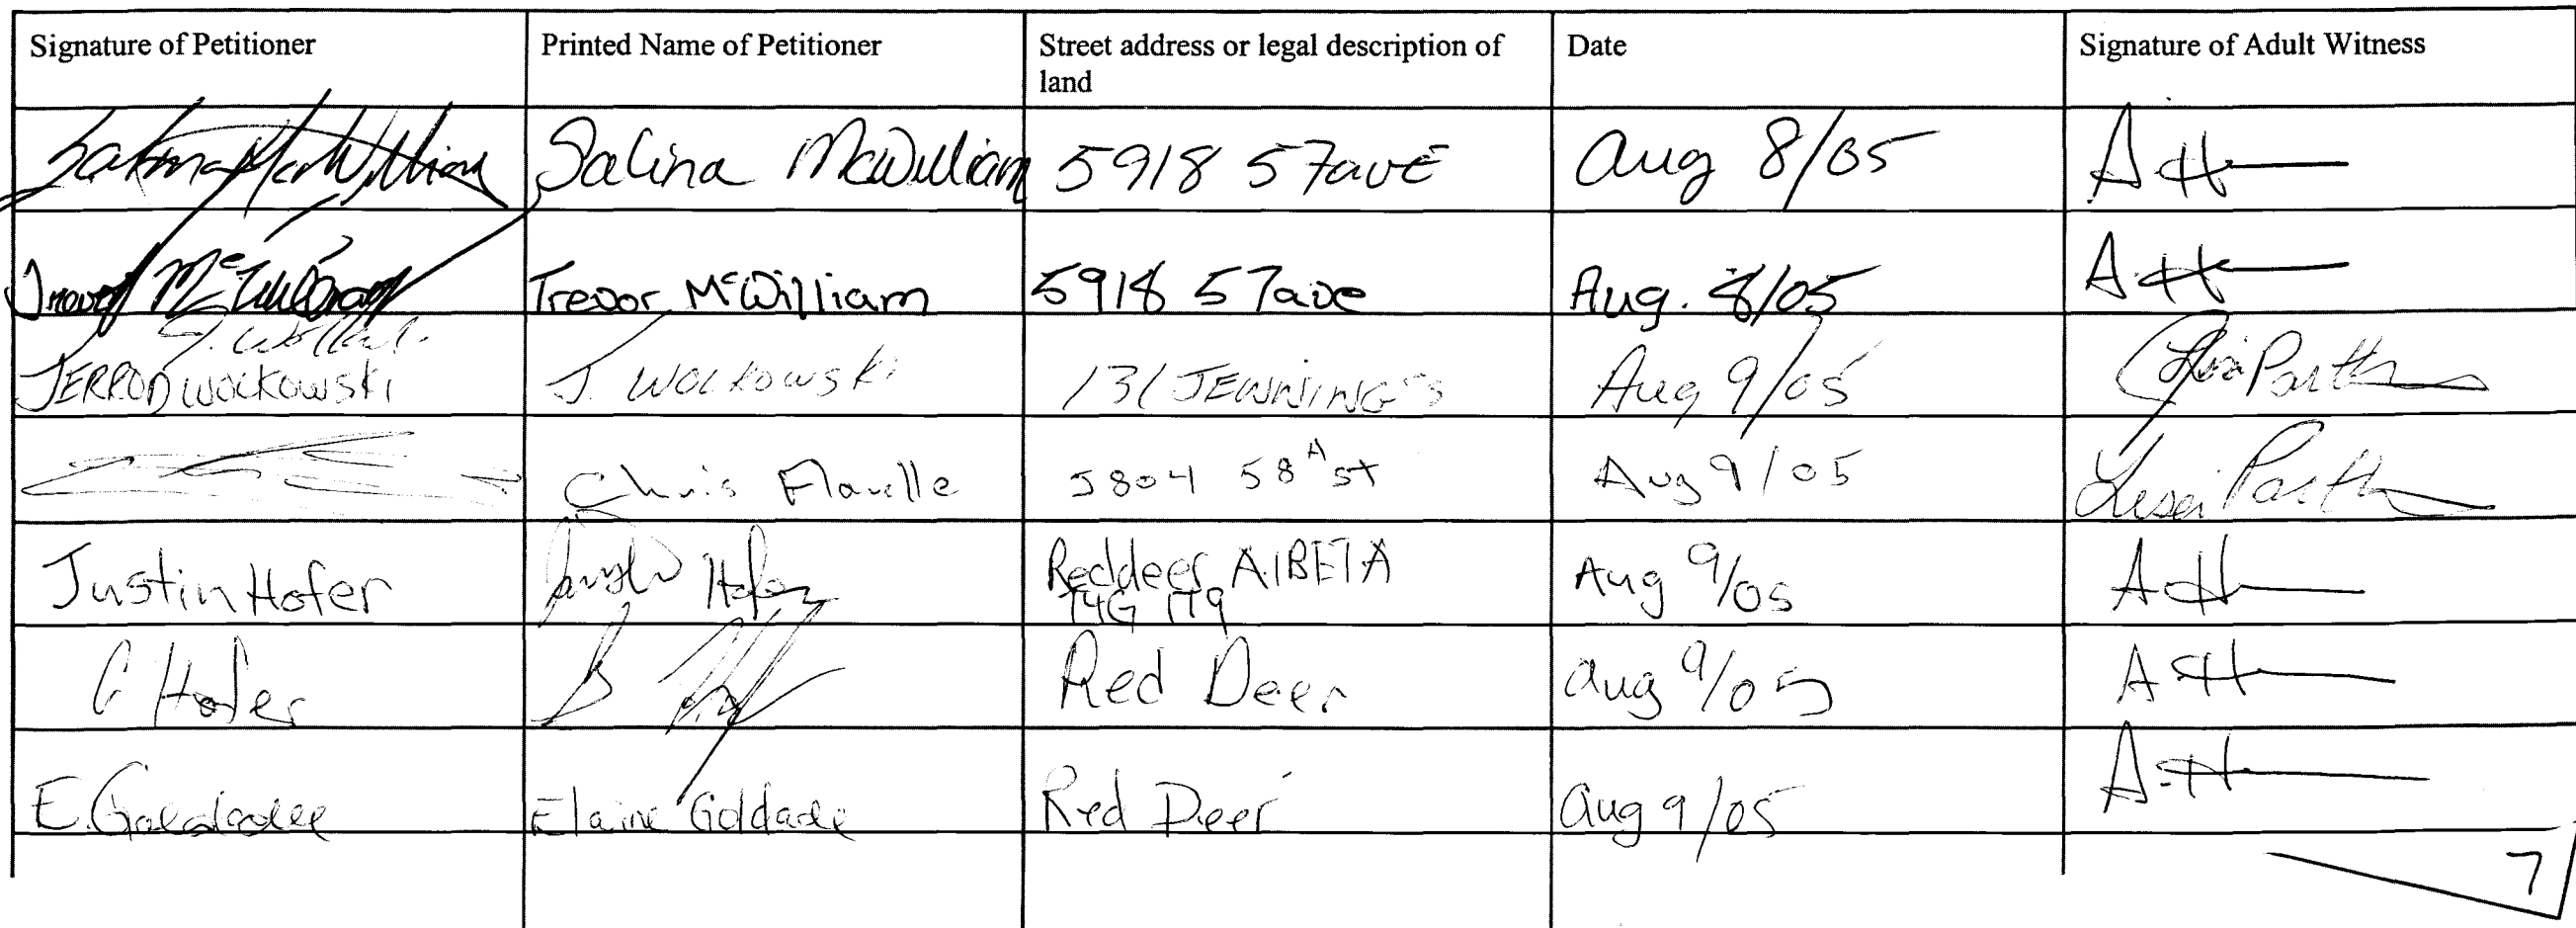 Signature of Petitioner Printed Name of Petitioner Street address or legal description of land Date Signature of Adult Witness
Salina McWilliam Salina McWilliam 5918 57avE Aug 8/05
Trevor McWilliam Trevor McWilliam 5918 57ave Aug. 8/05
J.
JERROD WOLKOWSKI J. WOLKOWSKI 131 JENNINGS Aug 9/05
Chris Flavelle 5804 58 A St Aug 9/05
Justin Hofer Justin Hofer Reddeer AlBETA Aug 9/05
T4G 1T9
Hofer Red Deer Aug 9/05
E. Goldade Elaine Goldade Red Deer Aug 9/05
7